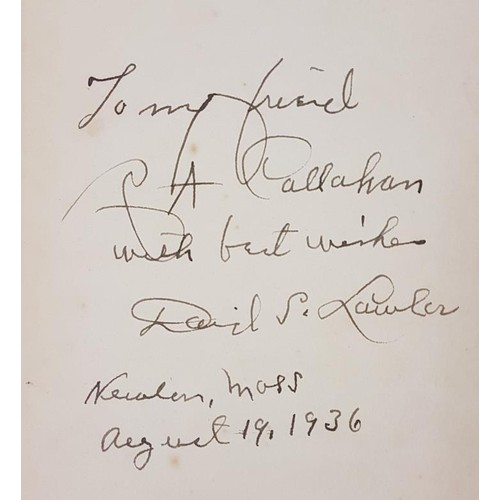 To my friend
P A Callahan
with best wishes
Daniel S. Lawlor
Newton, Mass
August 19, 1936